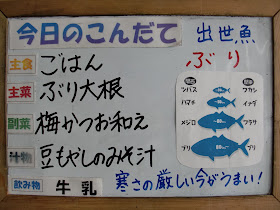 今日のこんだて
出世魚
ぶり
主食 ごはん
主菜 ぶり大根
副菜 梅かつお和え
汁物 豆もやしのみそ汁
飲み物 牛乳
寒さの厳しい今がうまい!
関東
関西
ワカシ
イナダ
ハマチ
メジロ
ワラサ
ブリ
ブリ